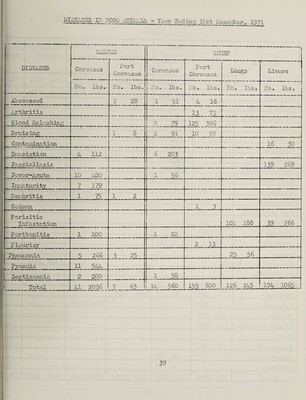 DISEASES IN FOOD ANIMALS - Year Ending 31st December, 1971
CALVES SHEEP
DISEASES Carcases Part Carcases Carcases Part Carcases Lungs Livers
No. lbs. No. lbs. No. lbs. No. lbs. No. lbs. No. lbs.
Abscessed 2 28 1 51 4 16
Arthritis 13 73
Blood Splashing 2 79 125 396
Bruising 1 8 2 91 10 99
Contamination 16 30
Emaciation 4 112 6 203
Fascioliasis 139 269
Fever-Acute 10 480 1 56
Immaturity 7 179
Nephritis 1 75 1 2
Oedema 1 3
Parasitic
Infestation 101 188 39 766
Peritonitis 1 100 1 22
Pleurisy 2 13
Pneumonia 5 266 3 25 25 56
Pyaemia 11 544
Septicaemia 2 280 1 58
Total 41 2036 7 63 14 560 155 600 126 245 194 1065
39